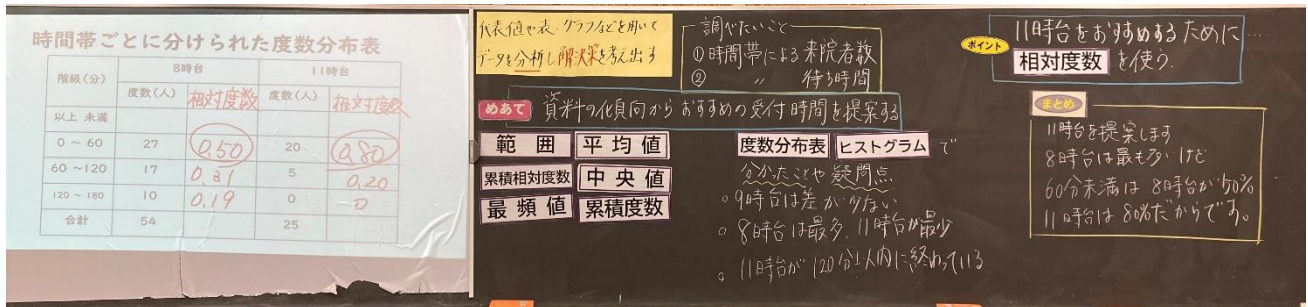 時間帯ごとに分けられた度数分布表
階級(分) 8時台 11時台
度数(人) 相対度数 度数(人) 相対度数
以上 未満
0 ～ 60 27 0.50 20 0.80
60 ～ 120 17 0.31 5 0.20
120 ～ 180 10 0.19 0 0
合計 54 25
代表値や表、グラフなどを用いて
データを分析し解決策を考え出す
調べたいこと
①時間帯による来院者数
② 〃 待ち時間
めあて 資料の傾向からおすすめの受付時間を提案する
範囲 平均値
累積相対度数 中央値
最頻値 累積度数
度数分布表 ヒストグラム で
分かったことや疑問点
。9時台は差が少ない
。8時台は最多、11時台が最少
。11時台が120分以内に終わっている
ポイント 11時台をおすすめするために……
相対度数 を使う.
まとめ
11時台を提案します
8時台は最も多いけど
60分未満は8時台が50%
11時台は80%だからです。